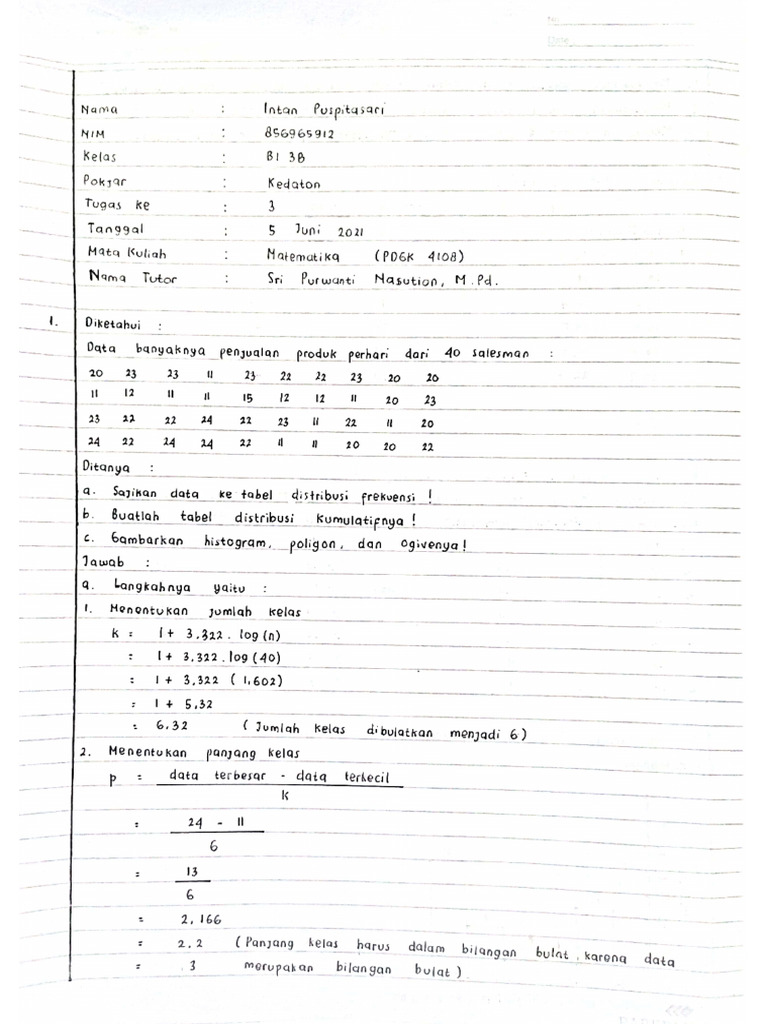 No.
Date
Nama : Intan Puspitasari
NIM : 856965912
Kelas : BI 3B
Pokjar : Kedaton
Tugas ke : 3
Tanggal : 5 Juni 2021
Mata Kuliah : Matematika (PDGK 4108)
Nama Tutor : Sri Purwanti Nasution, M.Pd.
1. Diketahui :
Data banyaknya penjualan produk perhari dari 40 salesman :
20 23 23 11 23 22 22 23 20 20
11 12 11 11 15 12 12 11 20 23
23 22 22 24 22 23 11 22 11 20
24 22 24 24 22 11 11 20 20 22
Ditanya :
a. Sajikan data ke tabel distribusi frekuensi !
b. Buatlah tabel distribusi kumulatipnya !
c. Gambarkan histogram, poligon, dan ogivenya !
Jawab :
a. Langkahnya yaitu :
1. Menentukan jumlah kelas
k = 1 + 3,322 . log (n)
= 1 + 3,322 . log (40)
= 1 + 3,322 (1,602)
= 1 + 5,32
= 6,32 (Jumlah kelas dibulatkan menjadi 6)
2. Menentukan panjang kelas
p = data terbesar - data terkecil
k
= 24 - 11
6
= 13
6
= 2,166
= 2.2 (Panjang kelas harus dalam bilangan bulat, karena data
= 3 merupakan bilangan bulat)